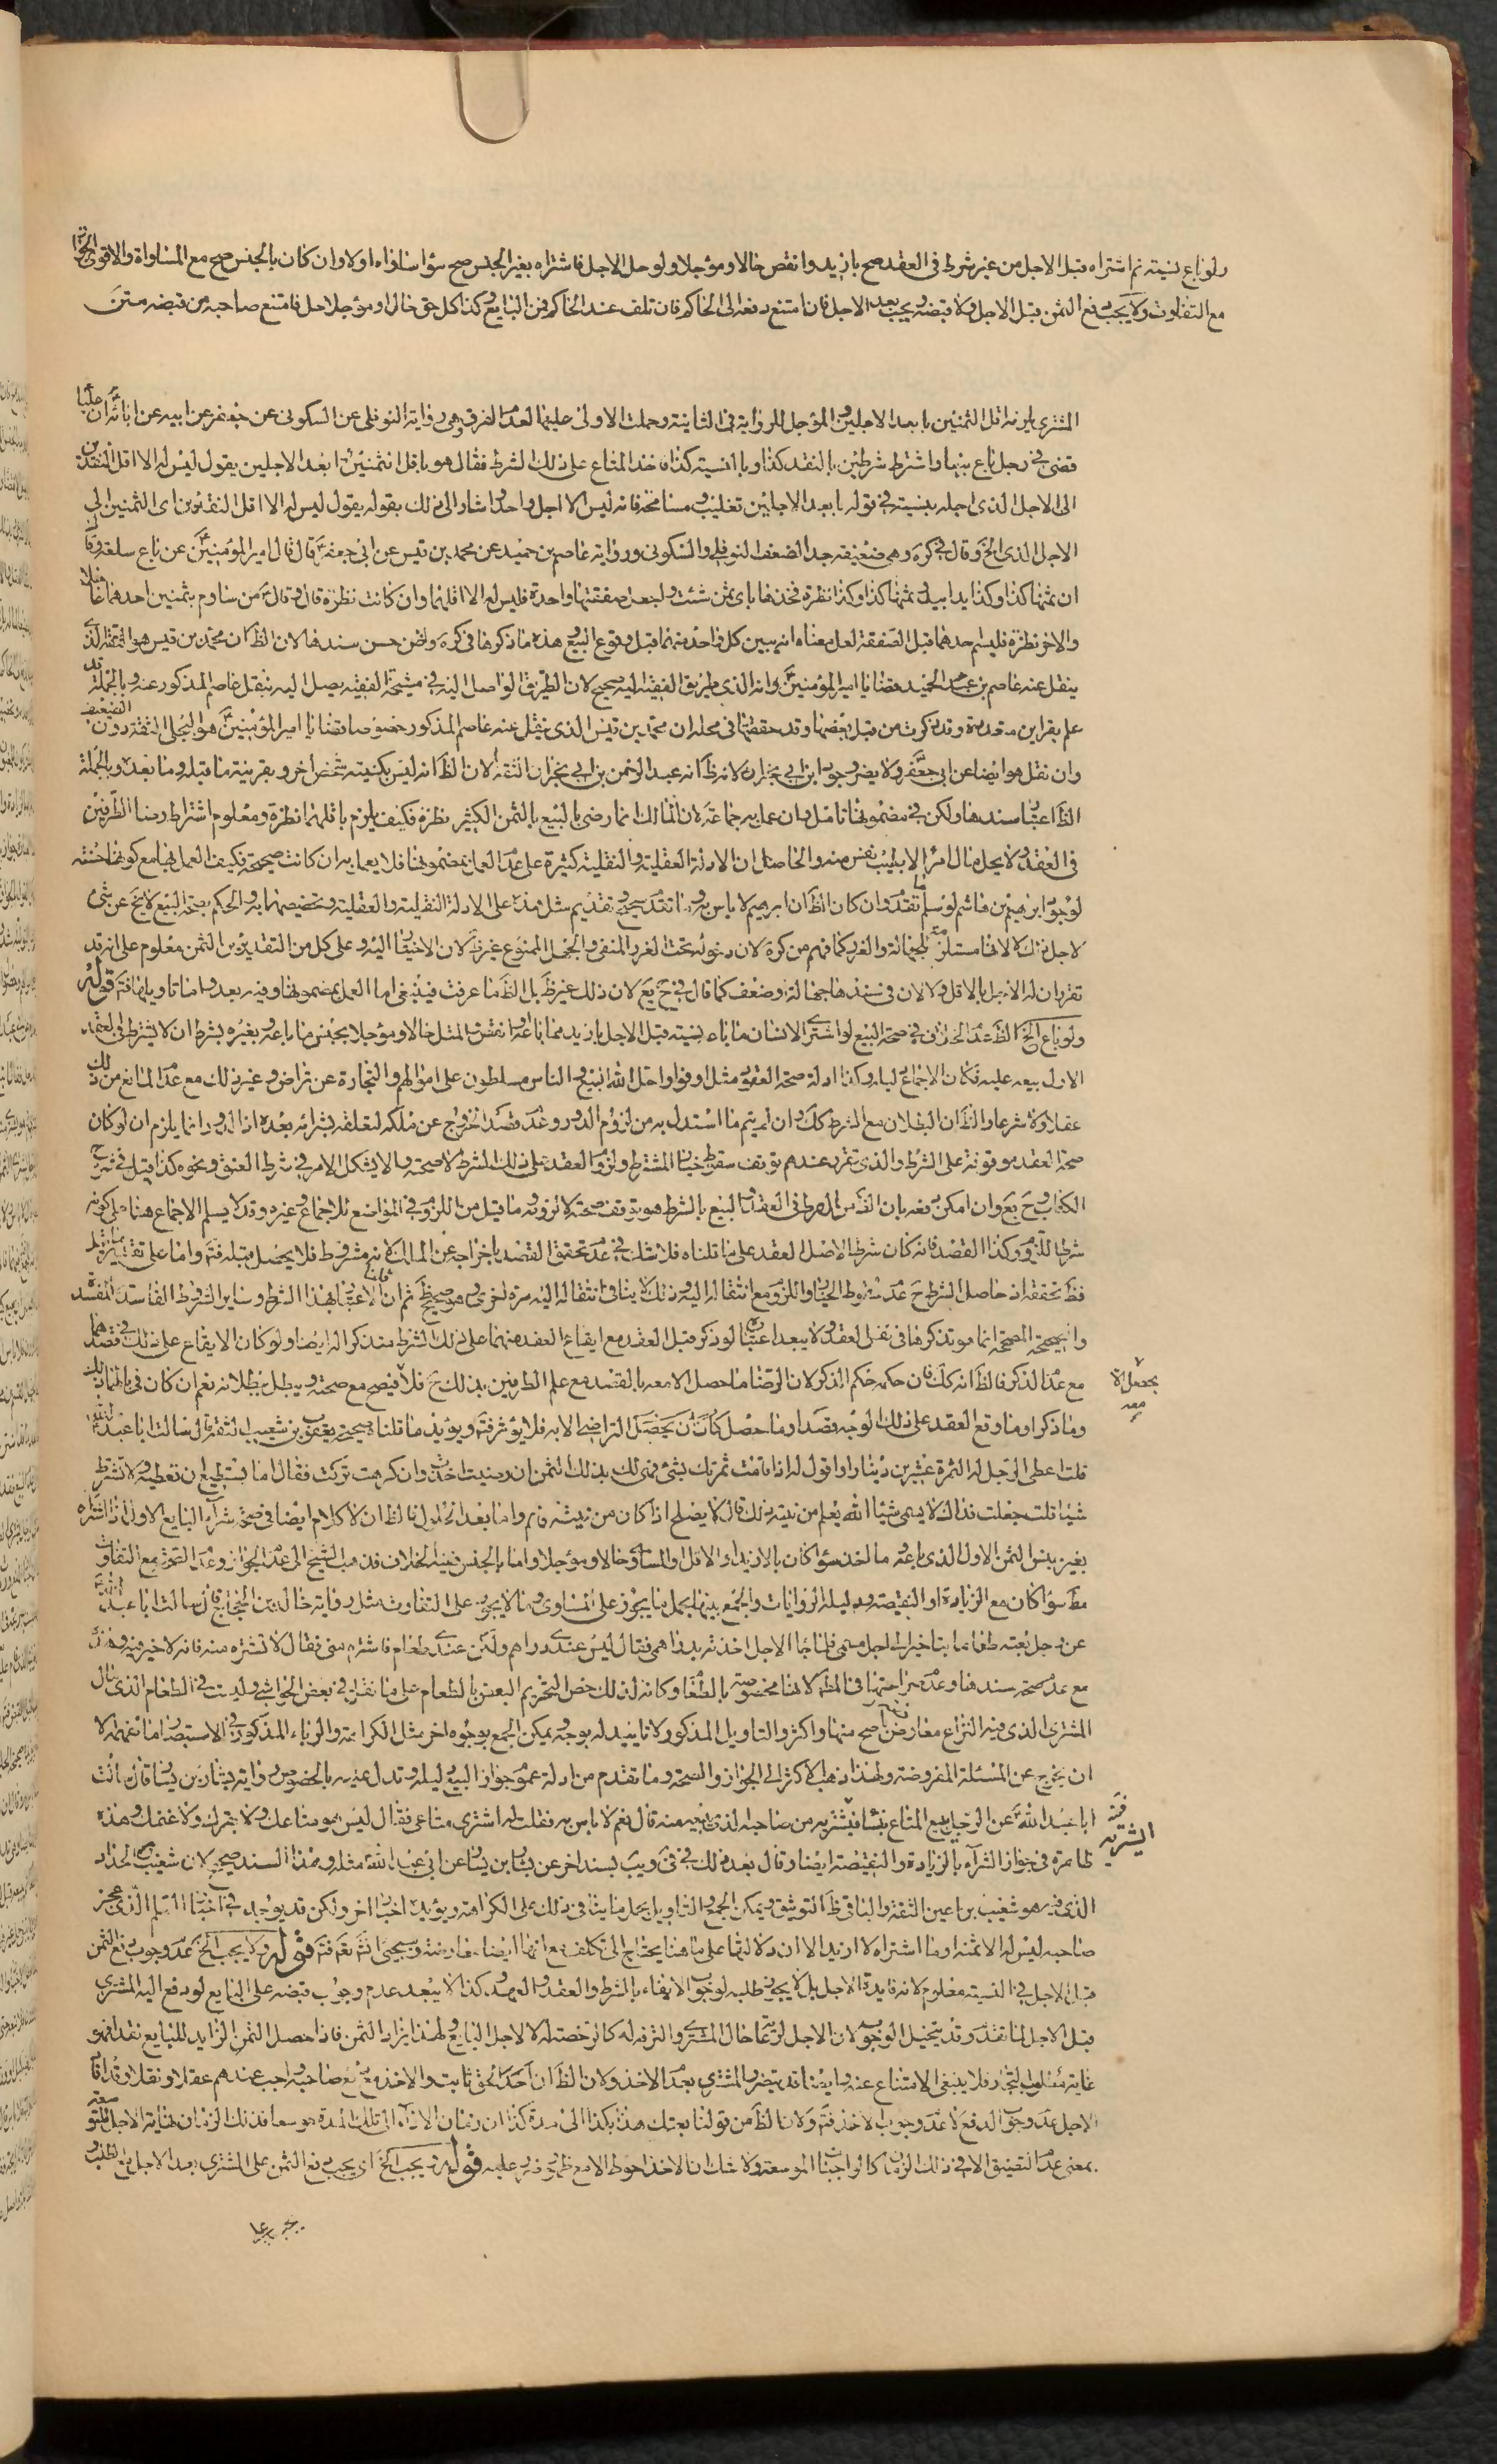 ولو باع نسيئة ثم اشتراه قبل الاجل من غير شرط في العقد صح بازيد وانقص حالا ومؤجلا ولو حل الاجل فاشتراه بغير الجنس صح سواء ساواه او لا وان كان بالجنس صح مع المساواة والاقوى الجواز
مع التفاوت ولا يجب دفع الثمن قبل الاجل ولا قبضه ويجب بعد الاجل فان امتنع دفعه الى الحاكم فان تلف عند الحاكم فمن البايع وكذا كل حق حال او مؤجل حل فامتنع صاحبه من قبضه متن
المشتري يلزمه اقل الثمنين بابعد الاجلين المؤجل للرواية في الثانية وحملت الاولى عليها لعدم الفرق وهي رواية النوفلي عن السكوني عن جعفر عن ابيه عن ابائه ان عليا
قضى في رجل باع بيعا واشترط شرطين بالنقد كذا وبالنسيئة كذا فاخذ المتاع على ذلك الشرط فقال هو باقل الثمنين وابعد الاجلين يقول ليس له الا اقل النقدين
الى الاجل الذي اجله بنسيئة في قوله بابعد الاجلين تغليب ومسامحة فانه ليس الا اجل واحد واشار الى ذلك بقوله يقول ليس له الا اقل النقدين اى الثمنين الى
الاجل الذي الخ وقال في كره وهي ضعيفة جدا لضعف النوفلي والسكوني ورواية عاصم بن حميد عن محمد بن قيس عن ابي جعفر قال قال امير المؤمنين من باع سلعة وقال
ان ثمنها كذا وكذا يدا بيد وثمنها كذا وكذا نظرة فخذها باى ثمن شئت واجعل صفقتها واحدة فليس له الا اقلهما وان كانت نظرة قال وقال من ساوم بثمنين احدهما عاجلا
والاخر نظرة فليسم احدهما قبل الصفقة لعل معناه انه يبين كل واحد منهما قبل وقوع البيع هذه ما ذكرها في كره ولكن حسن سندها لان الظ ان محمد بن قيس هو الثقة الذي
ينقل عنه عاصم بن حميد قضايا امير المؤمنين وانه الذي طريق الفقيه اليه صحيح لان الطريق الواصل اليه في مشيخة الفقيه يصل اليه بنقل عاصم المذكور عنه وبالجملة قد
علم بقراين متعددة وقد ذكرت من قبل بعضها وقد حققتها في محله ان محمد بن قيس الذي ينقل عنه عاصم المذكور خصوصا قضايا امير المؤمنين هو البجلي الثقة دون الضعيف
وان نقل هو ايضا عن ابي جعفر ولا يضر وجود ابن ابي نجران لانه ظ انه عبد الرحمن بن ابي نجران الثقة لان الظ انه ليس بكنيته شخص اخر وبقرينة ما قبله وما بعده وبالجملة
الظ اعتبار سندها ولكن في مضمونها تامل وان عمل به جماعة لان المالك انما رضي بالبيع بالثمن الكثير نظرة فكيف يلزم باقلهما نظرة ومعلوم اشتراط رضا الطرفين
في العقد ولا يحل مال امرئ الا بطيب نفس منه والحاصل ان الادلة العقلية والنقلية كثيرة على عدم العمل بمضمونها فلا يعمل بها وان كانت صحيحة فكيف العمل بها مع كونها حسنة
لوجود ابراهيم بن هاشم لو سلم تقدم وان كان الظ ان ابراهيم لا باس به وما تقدم صحيح وتقديم مثل هذه على الادلة النقلية والعقلية وتخصيصها به والحكم بصحة البيع لا يخ عن شئ
لاجل ذلك لا لانها مستلزمة للجهالة والغرر كما فهم من كره لان دخوله تحت الغرر المنفي والجهل الممنوع غير ظ لان الاختيار اليه وعلى كل من التقديرين الثمن معلوم على انه قد
تقرر ان له الاجل بالاقل ولا لان في سندها جهالة وضعف كما قال في ح يع لان ذلك غير ظ بل الظ ما عرفت فينبغي اما العمل بمضمونها وفيه بعد واما تاويلها فتم قوله
ولو باع الخ الظ عدم الخلاف في صحة البيع لو اشترى الانسان ما باعه بنسيئة قبل الاجل بازيد مما باعه او انقص او المثل حالا ومؤجلا بجنس ما باعه وبغيره بشرط ان لا يشترط في العقد
الاول بيعه عليه فكان الاجماع دليله وكذا ادلة صحة العقود مثل اوفوا واحل الله البيع والناس مسلطون على اموالهم والتجارة عن تراض وغير ذلك مع عدم المانع من ذلك
عقلا ولا شرعا والظ ان البطلان مع الشرط كك وان لم يتم ما استدل به من لزوم الدور وعدم قصد الخروج عن ملكه لتعلقه بشرائه بعده اذ الدور انما يلزم ان لو كان
صحة العقد موقوفة على الشرط والذي تقرر عندهم توقف سقوط خيار المشترط ولزوم العقد على ذلك الشرط لا صحته والا يشكل الامر في شرط العتق ونحوه كذا قيل في شرح
الكتاب وح يع وان امكن دفعه بان الغرض من الشرط في العقد البيع بالشرط هو توقف صحته لا لزومه وما قيل من اللزوم في المواضع للاجماع وغيره وقد لا يسلم الاجماع هنا على كونه
شرطا للزوم وكذا القصد فانه كان شرطا لاصل العقد على ما قلناه فلا شك في عدم تحقق القصد باخراجه عن المالك لانه مشروط فلا يحصل قبله فتم واما على تقدير
فظ تحققه اذ حاصل الشرط ح عدم سقوط الخيار واللزوم مع انتقاله اليه وذلك لا ينافي انتقاله اليه مرة اخرى وهو صحيح ظ ثم ان الاعتبار بهذا الشرط وساير الشروط الفاسدة المفسدة
والصحيحة المصححة انما هو تذكرها في نفس العقد ولا يبعد اعتبار لو ذكر قبل العقد مع ايقاع العقد منهما على ذلك الشرط متذكرا له ايضا ولو كان الايقاع على ذلك في قصدهما
مع عدم الذكر فالظ انه كك فان حكمه حكم الذكر لان الرضا ما حصل الا معه بالقصد مع علم الطرفين بذلك ح فلا فيصح مع صحته ويبطل ببطلانه نعم ان كان في بالهما ذلك
وما ذكرا وما وقع العقد على ذلك الوجه وقصدا وما حصل التراضي الا به فلا يؤثر فتم ويؤيد ما قلناه صحيحة يعقوب بن شعيب الثقة قال سالت ابا عبد الله
قلت اعطي الرجل له الثمرة عشرين دينارا واقول له اذا قامت ثمرتك بشئ فهي لك بذلك الثمن ان رضيت اخذت وان كرهت تركت فقال اما تستطيع ان تعطيه ولا تشترط
شيئا قلت جعلت فداك لا يسمى شيئا الله يعلم من نيته ذلك قال لا يصلح اذا كان من نيته فتم واما بعد الحلول فالظ ان لا كلام ايضا في صحة شراء البايع الاول اذا اشتراه
بغير جنس الثمن الاول الذي باعه ما لخذ سواء كان بالازيد او الاقل او المساوى حالا ومؤجلا واما بالجنس ففيه الخلاف فذهب الشيخ الى عدم الجواز وعدم الصحة مع التفاوت
مط سواء كان مع الزيادة او النقيصة ودليله الروايات والجمع بينها بحمل ما يجوز على التساوى وما لا يجوز على التفاوت مثل رواية خالد بن الحجاج قال سالت ابا عبد الله
عن رجل بعته طعاما بتاخير الى اجل مسمى فلما جاء الاجل اخذته بدراهمي فقال ليس عندي دراهم ولكن عندي طعام فاشتره مني فقال لا تشتره منه فانه لا خير فيه وهذه
مع عدم صحة سندها وعدم صراحتها في المط لانها مخصوصة بالطعام وكانه لذلك خص التحريم البعض بالطعام على ما نقل في بعض الحواشي وليست في الطعام الذي سال
المشتري الذي فيه النزاع معارض باصح منها واكثر والتاويل المذكور لا تاييد له بوجه ويمكن الجمع بوجوه اخر مثل الكراهة والرباء المذكور في الاستبصار اما نعمهما لا
ان يخرج عن المسئلة المفروضة ولهذا ذهب الاكثر الى الجواز والصحة وما تقدم من ادلة عموم جواز البيع دليله وتدل عليه بالخصوص رواية بشار بن يسار قال سالت
ابا عبد الله عن الرجل يبيع المتاع بنساء فيشتريه من صاحبه الذي يبيعه منه قال نعم لا باس به فقلت له اشتري متاعي فقال ليس هو متاعك ولا بقرك ولا غنمك وهذه
ظاهرة في جواز الشراء بالزيادة والنقيصة ايضا وقال بعد ذلك في في ويب بسند اخر عن بشار بن يسار عن ابي عبد الله مثله وهذا السند صحيح لان شعيب الحداد
الذي فيه هو شعيب بن اعين الثقة والباقي ظ التوثيق ويمكن الجمع والتاويل بحمل ما ينافي ذلك على الكراهة ويؤيده اخبار اخر ولكن قد يوجد في اخبار السلم الذي عجز
صاحبه ليس له الا ثمنه او ما اشتراه لا ازيد الا ان دلالتها على ما هنا يحتاج الى تكلف مع انها ايضا معارضة وسيجئ انش تعه فتم قوله ولا يجب الخ عدم وجوب دفع الثمن
قبل الاجل في النسيئة معلوم لانه فايدة الاجل بل لا يجوز طلبه لوجوب الايفاء بالشرط والعقد والعهد وكذا لا يبعد عدم وجوب قبضه على البايع لو دفع اليه المشتري
قبل الاجل لما تقدم وقد يتخيل الوجوب لان الاجل لرعاية حال المشتري والترفه له كالرخصة له لا لاجل البايع ولهذا يزاد الثمن فاذا حصل الثمن الزايد للبايع نقدا فهو
غاية مطلوب التجار فلا ينبغي الامتناع عنه وايضا قد يتضرر المشتري بعدم الاخذ ولان الظ ان احد الحق ثابت والاخذ مع دفع صاحبه واجب عندهم عقلا ونقلا وقد افاد
الاجل عدم وجوب الدفع لا عدم وجوب الاخذ فتم ولان الظ من قولنا بعتك هذا بكذا الى مدة كذا ان زمان الاداء الى تلك المدة موسعا فذلك الزمان نهاية الاجل للتوسعة
بمعنى عدم التضييق الا في ذلك الزمان كالواجبات الموسعة ولا شك ان الاخذ احوط الا مع ظهور ضرر عليه قوله ويجب الخ اى يجب دفع الثمن على المشتري بعد الاجل مع الطلب
يحصل الا
معه
فيشتريه